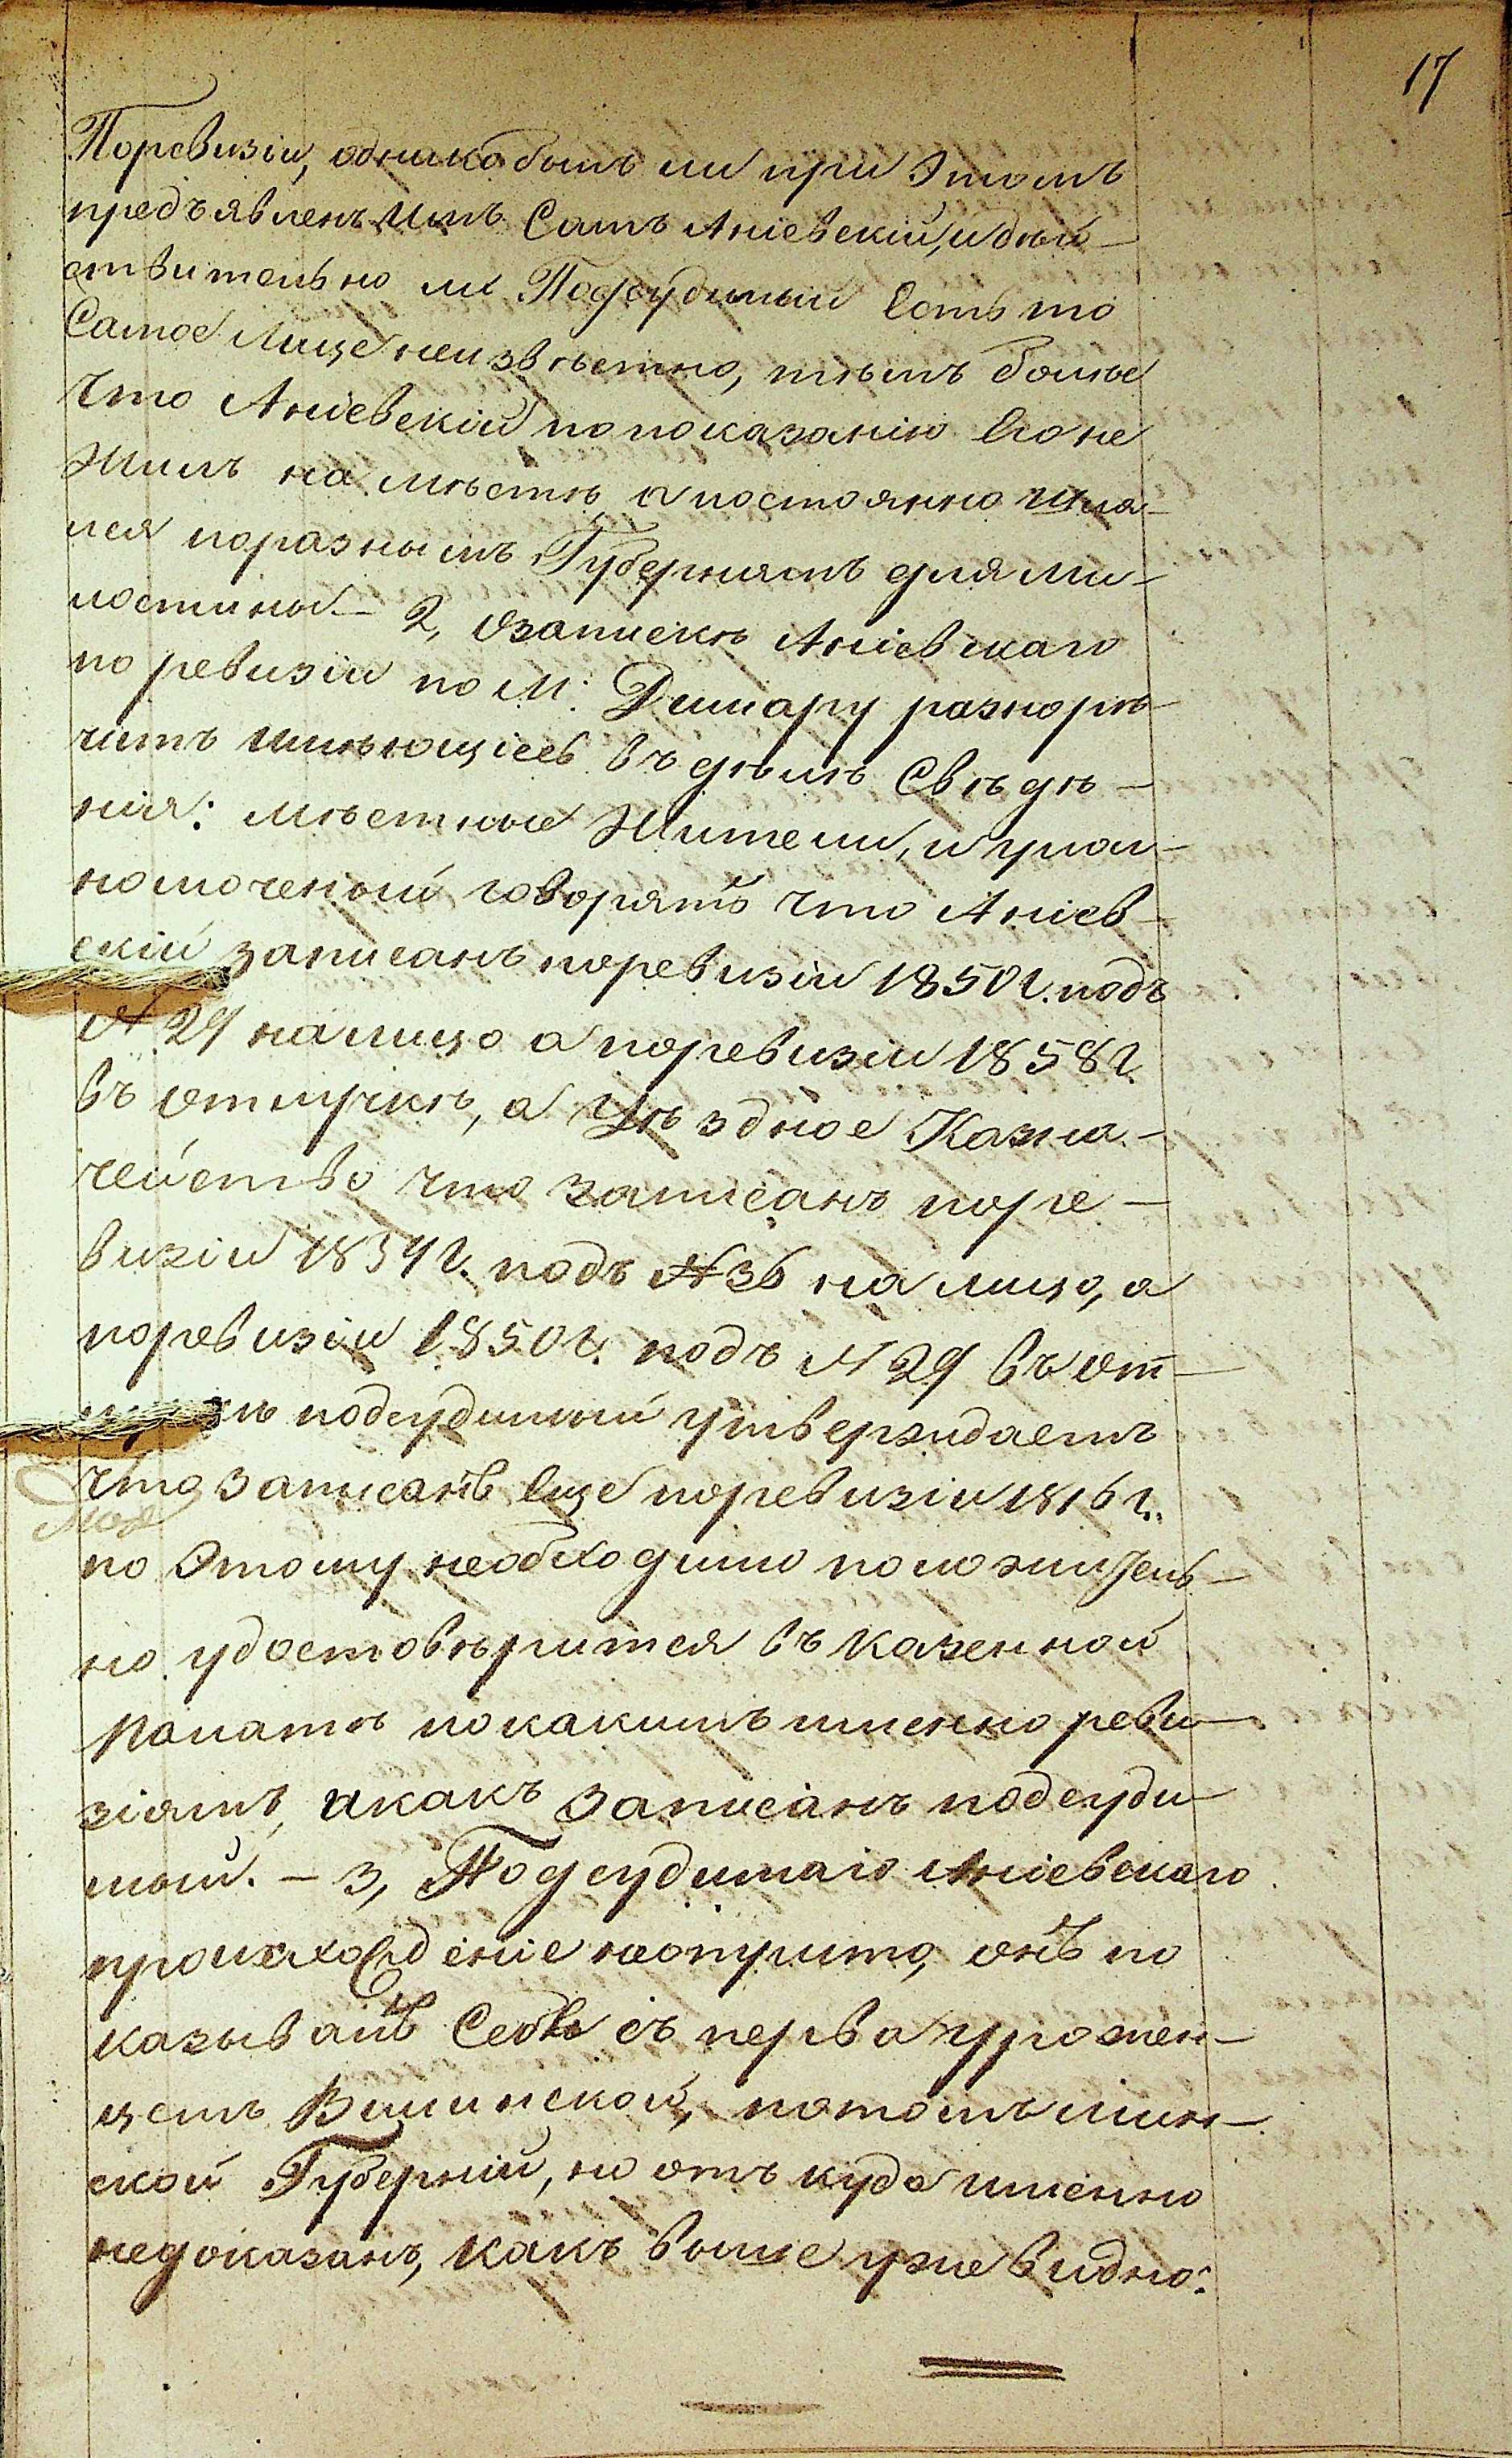 17
Поревизіи, однако былъ ли при Этомъ
предъявленъ Имъ Самъ Аніевскій, и дѣй-
ствительно ли Подсудимый Есть то
Самое Лице неизвѣстно, тѣмъ болѣе
что Аніевскій по показанію Его не
Жилъ на мѣстѣ, а постоянно шля-
лся поразнымъ Губерніямъ для Ми-
лостины — 2, Озапискѣ Аніевскаго
по ревизіи по М: Дишару разнорѣ-
читъ имѣющіесь въ дѣлѣ Свѣдѣ-
нія: мѣстные Жители, и упол-
номоченый говорятъ что Аніев-
скій записанъ поревизіи 1850 г. подъ
№ 29 налицо а поревизіи 1858 г.
въ отлучкѣ, а Уѣздное Казна-
чейство что записанъ поре-
визіи 1834 г. подъ № 36 на лицо, а
поревизіи 1850 г. подъ № 29 въ от-
лучкѣ подсудимый утверждаетъ
что записанъ еще поревизіи 1816 г.
по Этому необходимо положитель-
но удостовѣрится въ Казенной
Палатѣ по какимъ именно реви-
зіямъ, и какъ записанъ подсуди-
мый. — 3, Подсудимаго Аніевскаго
происхожденіе неоткрыто, онъ по
казывалъ Себя съ перва урожен-
цемъ Виленской, потомъ Мин-
ской Губерній, но отъ куда именно
недоказанъ, какъ выше уже видно.